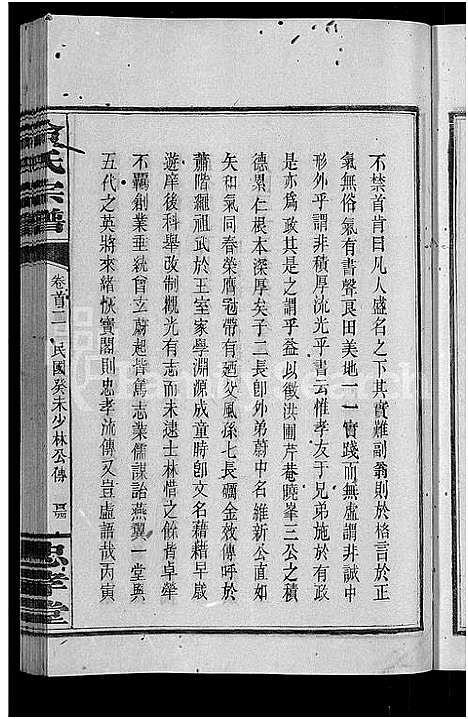 不禁首肯曰凡人盛名之下其實難副翁則於格言於正
氣無俗氣有書聲良田美地一一實踐而無虛謂非誠中
形外乎謂非積厚流光乎書云惟孝友于兄弟施於有政
是亦為政其是之謂乎益以徵洪圃芹菴曉峯三公之積
德累仁根本深厚矣子二長卽外弟蔚中名維新公直
矢和氣同春榮膺冠帶有廼父風孫七長礪金效傳呼於
蕭階繩祖武於王室家學淵源成童時卽文名藉藉早戲
遊庠後科舉改制觀光有志而未逮士林惜之餘皆卓犖
不羈創業垂統曾玄蔚起皆篤志業儒謀詒燕翼一堂奥
五代之英將來緒恢寳閣則忠孝流傳又豈虛語哉丙寅
氏宗譜
卷首二
民國癸未少林公傳
忠孝堂